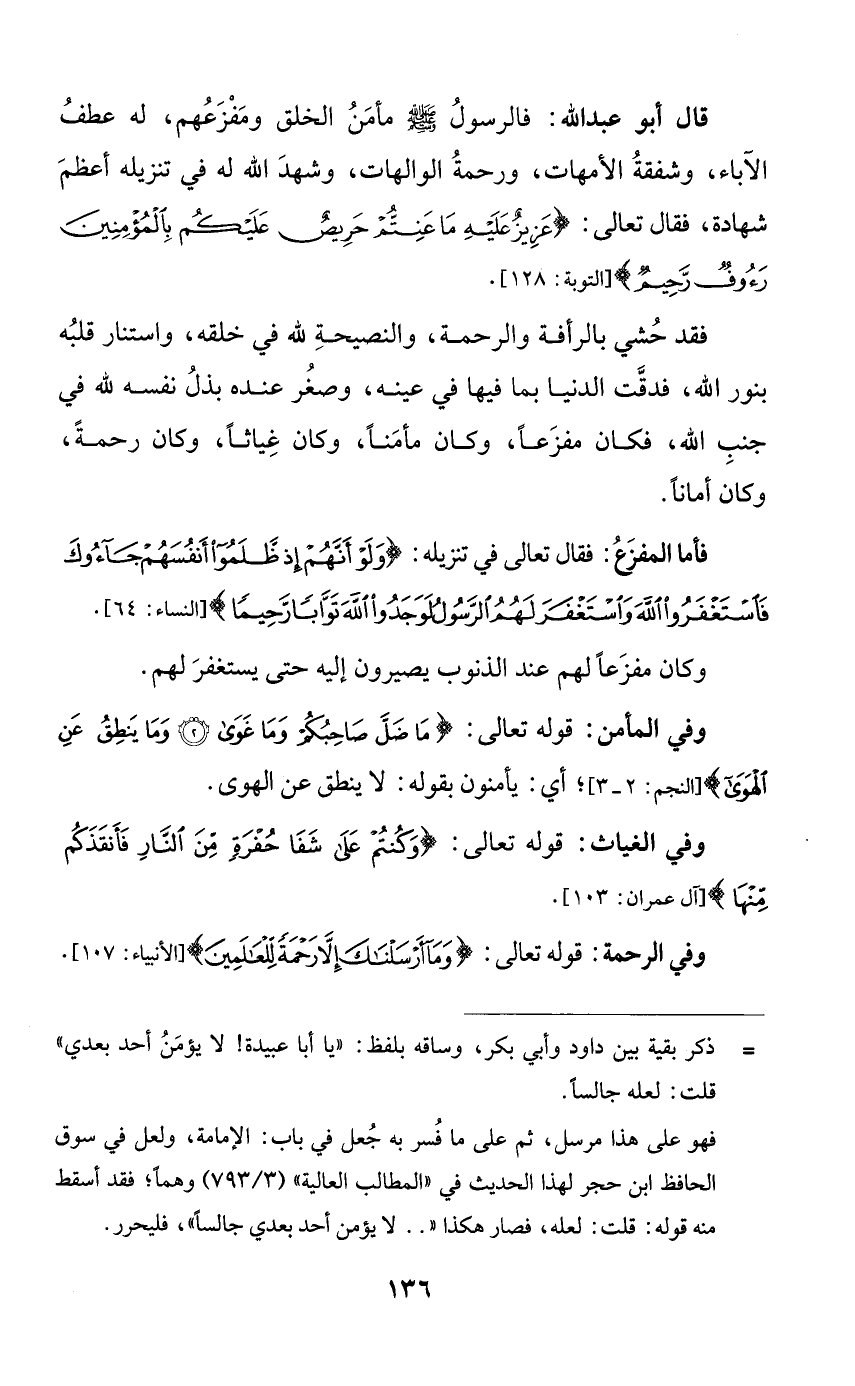 قال أبو عبدالله: فالرسولُ ﷺ مأمَنُ الخلق ومَفْزَعُهم، له عطفُ
الآباء، وشفقةُ الأمهات، ورحمةُ الوالهات، وشهدَ الله له في تنزيله أعظمَ
شهادة، فقال تعالى: ﴿عَزِيزٌ عَلَيْهِ مَا عَنِتُّمْ حَرِيصٌ عَلَيْكُم بِالْمُؤْمِنِينَ
رَءُوفٌ رَّحِيمٌ﴾ [التوبة: ١٢٨].
فقد حُشي بالرأفة والرحمة، والنصيحةِ لله في خلقه، واستنار قلبُه
بنور الله، فدقَّت الدنيا بما فيها في عينه، وصغُر عنده بذلُ نفسه لله في
جنبِ الله، فكان مفزَعاً، وكان مأمَناً، وكان غِياثاً، وكان رحمةً،
وكان أماناً.
فأما المفزَعُ: فقال تعالى في تنزيله: ﴿وَلَوْ أَنَّهُمْ إِذ ظَّلَمُوٓا أَنفُسَهُمْ جَآءُوكَ
فَٱسْتَغْفَرُوا ٱللَّهَ وَٱسْتَغْفَرَ لَهُمُ ٱلرَّسُولُ لَوَجَدُوا ٱللَّهَ تَوَّابًا رَّحِيمًا﴾ [النساء: ٦٤].
وكان مفزَعاً لهم عند الذنوب يصيرون إليه حتى يستغفرَ لهم.
وفي المأمن: قوله تعالى: ﴿مَا ضَلَّ صَاحِبُكُمْ وَمَا غَوَىٰ ۝٢ وَمَا يَنطِقُ عَنِ
ٱلْهَوَىٰٓ﴾ [النجم: ٢ـ٣]؛ أي: يأمنون بقوله: لا ينطق عن الهوى.
وفي الغياث: قوله تعالى: ﴿وَكُنتُمْ عَلَىٰ شَفَا حُفْرَةٍ مِّنَ ٱلنَّارِ فَأَنقَذَكُم
مِّنْهَا﴾ [آل عمران: ١٠٣].
وفي الرحمة: قوله تعالى: ﴿وَمَآ أَرْسَلْنَٰكَ إِلَّا رَحْمَةً لِّلْعَٰلَمِينَ﴾ [الأنبياء: ١٠٧].
= ذكر بقية بين داود وأبي بكر، وساقه بلفظ: «يا أبا عبيدة! لا يؤمَنُ أحد بعدي»
قلت: لعله جالساً.
فهو على هذا مرسل، ثم على ما فُسر به جُعل في باب: الإمامة، ولعل في سوق
الحافظ ابن حجر لهذا الحديث في «المطالب العالية» (٣/٧٩٣) وهماً؛ فقد أسقط
منه قوله: قلت: لعله، فصار هكذا «.. لا يؤمن أحد بعدي جالساً»، فليحرر.
١٣٦